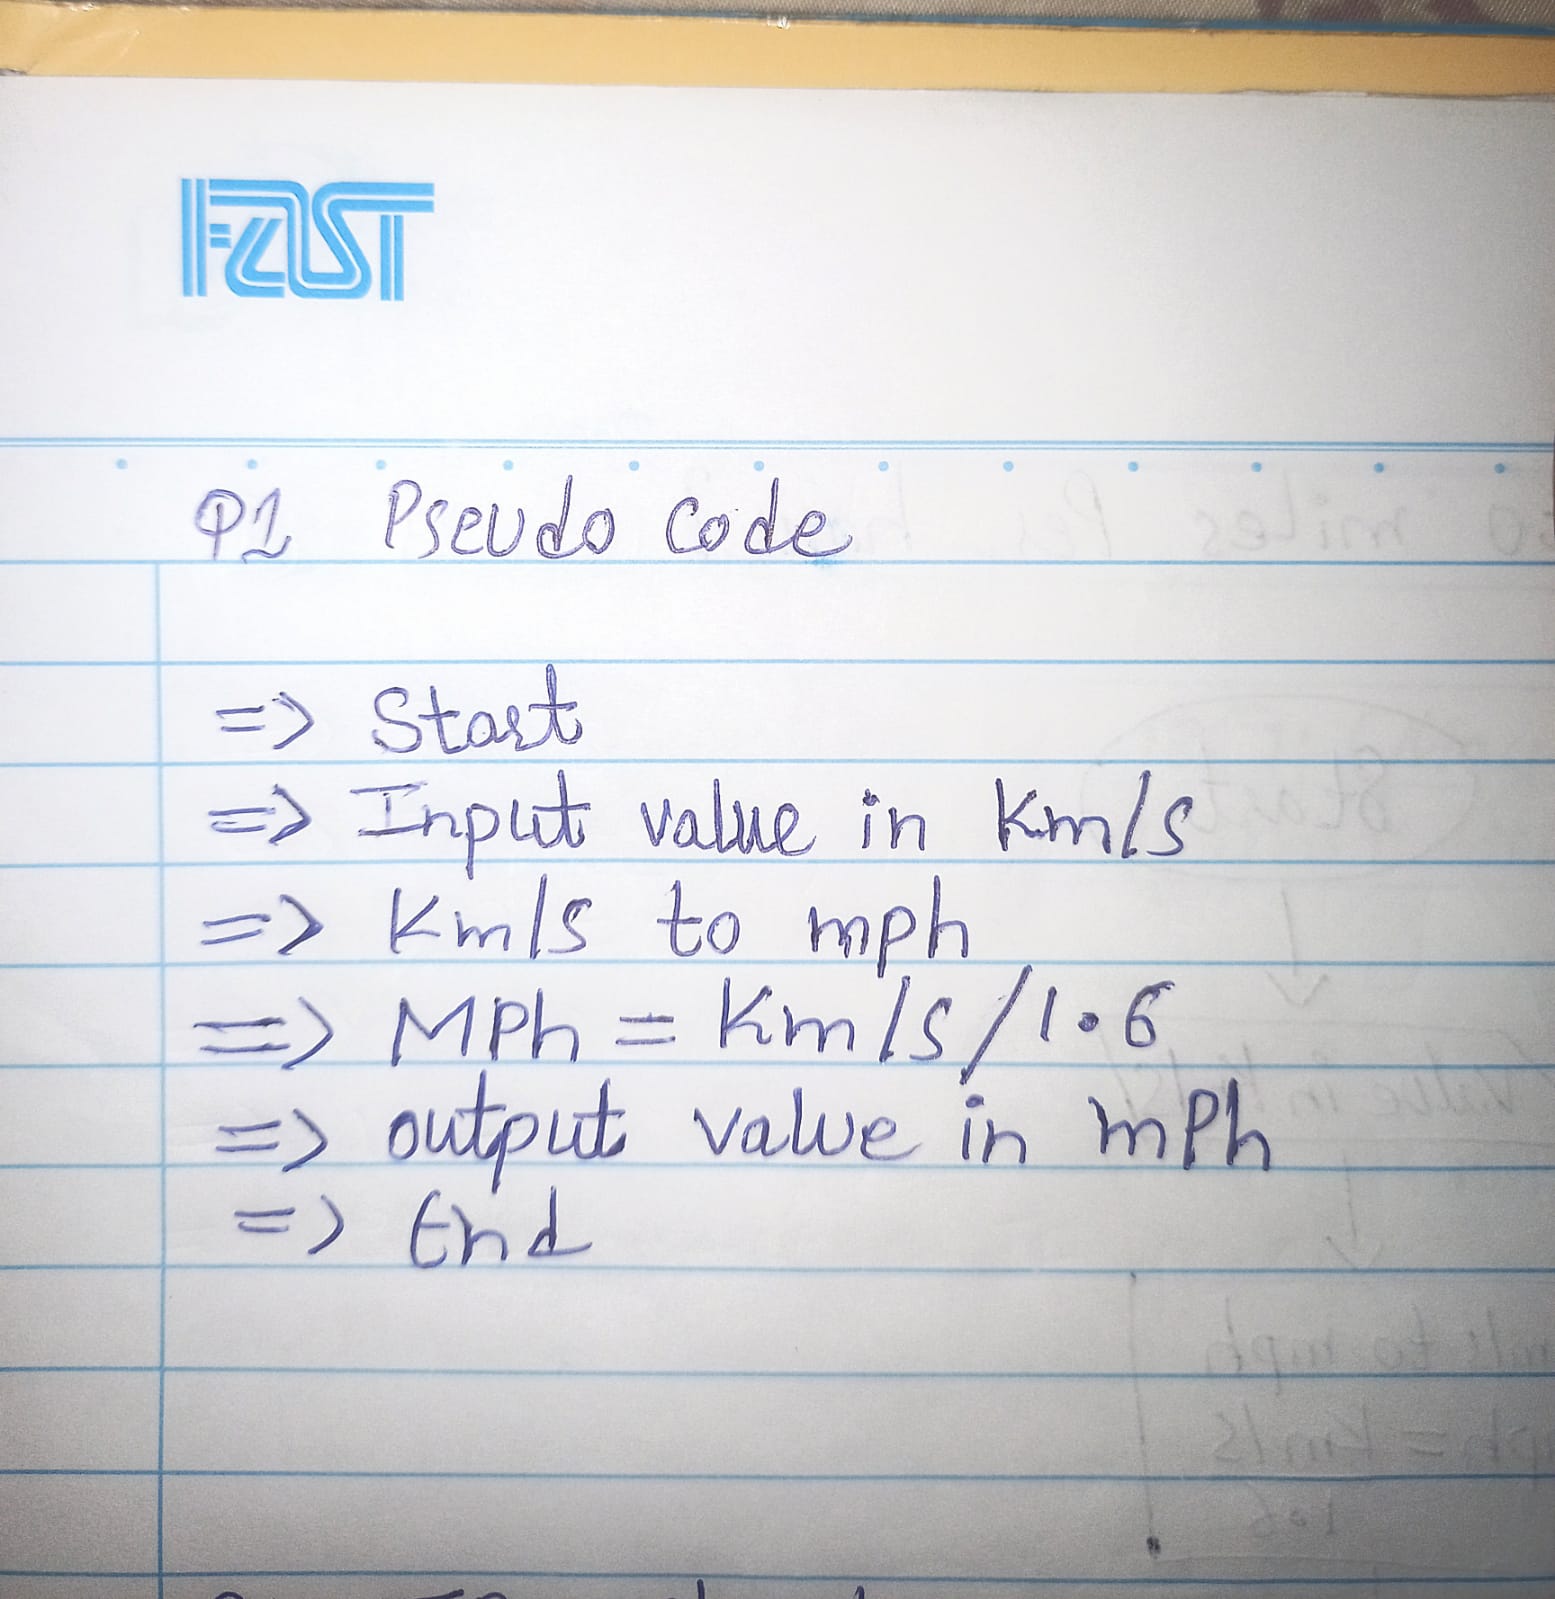 FAST
Q1 Pseudo Code
=> Start
=> Input value in Km/s
=> Km/s to mph
=> MPh = Km/s/1.6
=> output value in mPh
=> End